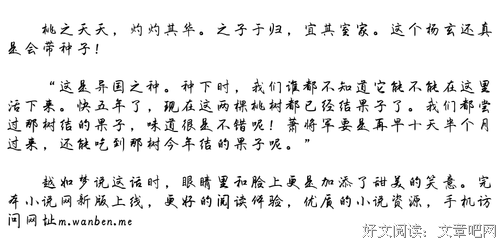 桃之夭夭，灼灼其华。之子于归，宜其室家。这个杨玄还真
是会带种子！
“这是异国之神。种下时，我们谁都不知道它能不能在这里
活下来。快五年了，现在这两棵桃树都已经结果子了。我们都尝
过那树结的果子，味道很是不错呢！萧将军要是再早十天半个月
过来，还能吃到那树今年结的果子呢。”
越如梦说这话时，眼睛里和脸上更是加添了甜美的笑意。完
本小说网新版上线，更好的阅读体验，优质的小说资源，手机访
问网址m.wanben.me
好文阅读：文章吧网